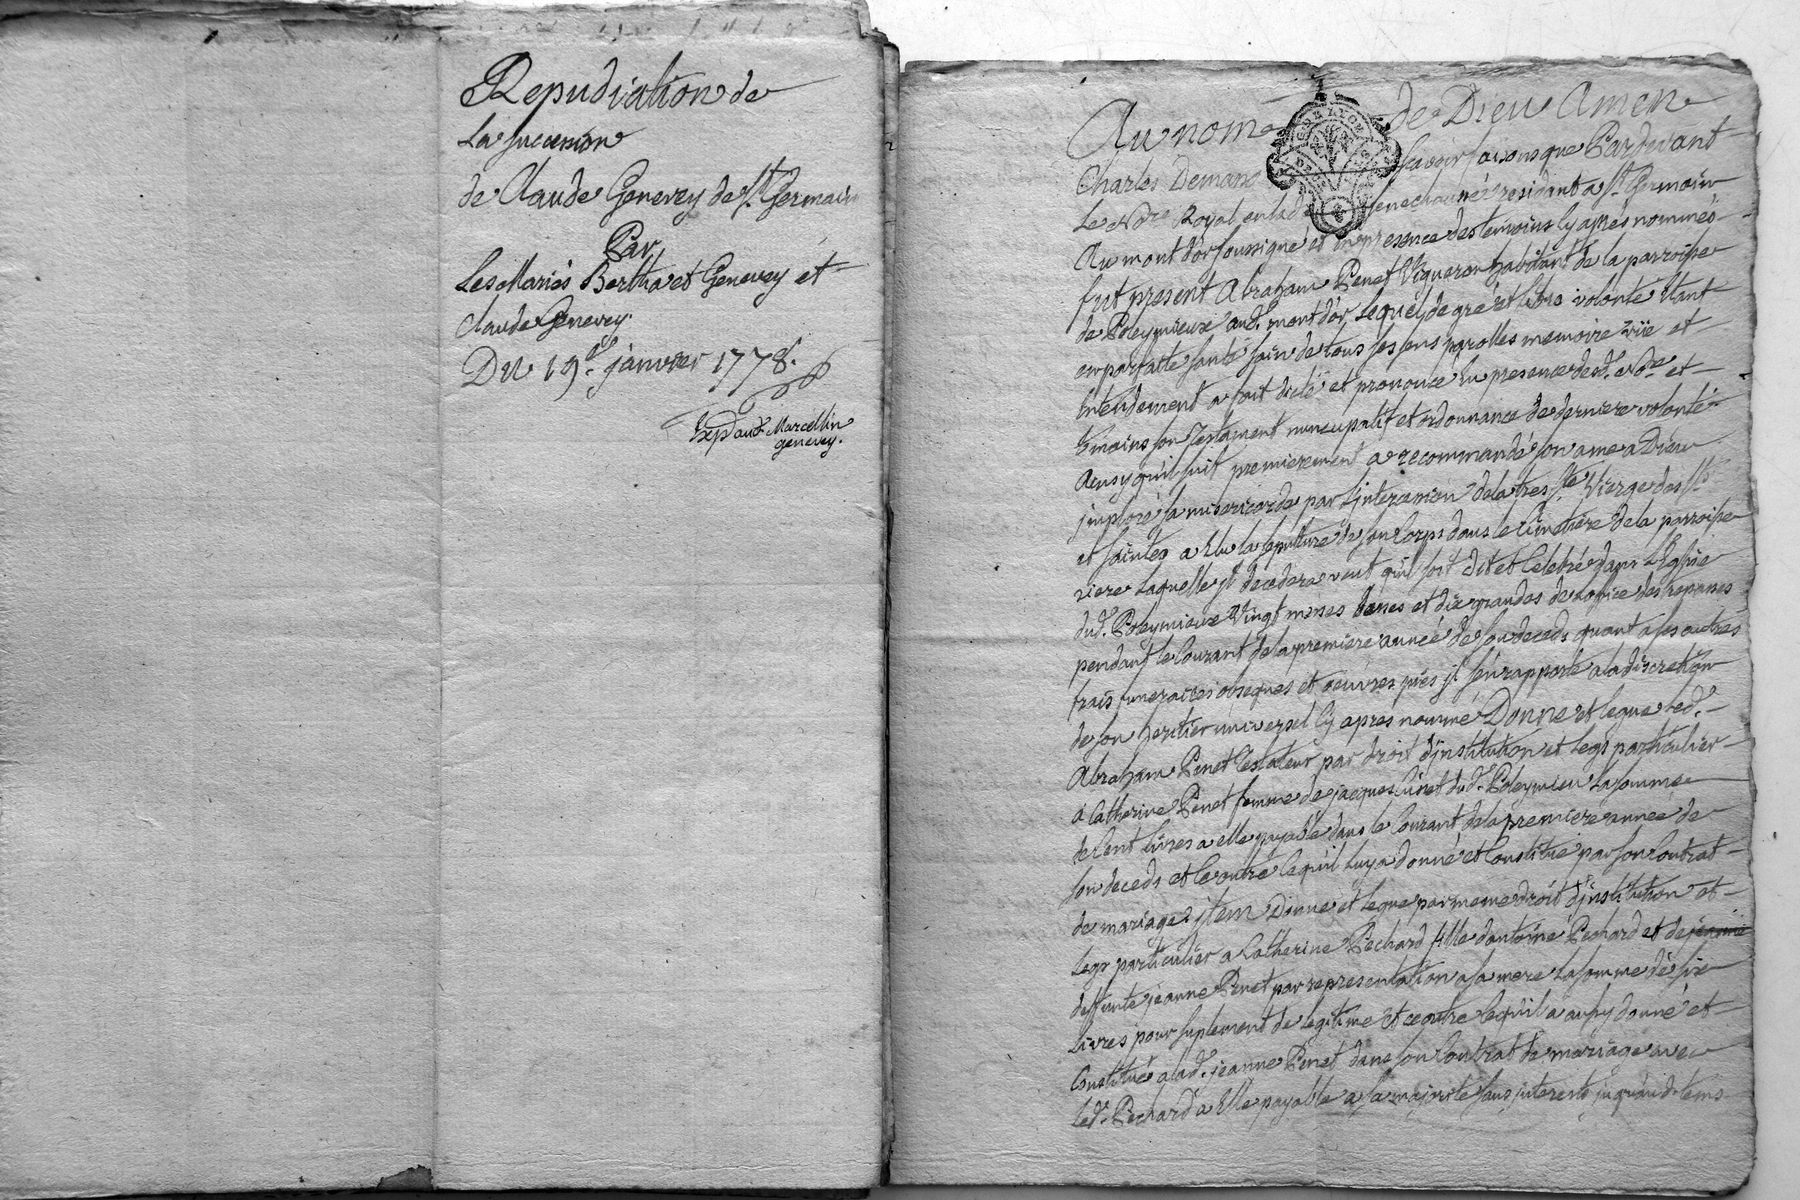 Repudiation de
La succession
de Claude Genevey de St. Germain
Par
Les Mariés Berthaet Genevey et
Claude Genevey.
Du 19e. janvier 1778.
Exp aud. Marcellin
genevey.
Au nom de Dieu Amen
Charles Demane scavoir faisons que Pardevant
Le Nore Royal en lad. senechaussé residant a St. Germain
Au mont d'or soussigné et en presence des temoins cy apres nommés
fut present Abraham Penet Vigneron habitant de la parroisse
de Poleymieux aud. mont d'or lequel de gré et libre volonté Etant
en parfaite santé sain de tous ses sens parolles memoire vüe et
Entendement a fait dicté et prononcé En presence dud. Nore et
temoins son testament nuncupatif et ordonnance de derniere volonté
Ainsy qu'il suit premierement a recommandé son ame a Dieu
imploré sa misericorde par L'intercession de la tres Ste Vierge des Sts
et saintes a Elu la sepulture de son Corps dans le Cimetiére de la parroisse
riere Laquelle il decedera veut qu'il soit dit et Celebré dans L'Eglise
dud. Poleymieux Vingt messes basses et dix grandes de L'office des repasses
pendant le Courant de la premiere année de son deceds quant a ses autres
frais funeraires obseques et oeuvres pies il s'en rapporte a la discretion
de son heritier universel Cy apres nommé Donne et legue led.
Abraham Penet testateur par droit d'institution et legs particulier
á Catherine Penet femme de jacques dud. Poleymieu La somme
de Cent livres a elle payable dans le Courant de la premiere année de
son deceds et ce outre ce qu'il Luy a donné et Constitué par son Contrat
de mariage, item Donne et legue par meme droit d'institution et
Legs particulier a Catherine Pechard fille d'antoine Pechard et de jeanne
deffunte jeanne Penet par representation a sa mere La somme de six
Livres pour suplement de legitime et ce outre ce qu'il a aussy donné et
Constitué a lad. jeanne Penet dans son Contrat de mariage avec
led. Pechard a Elle payable a sa majorité sans interests jusqu'aud. tems